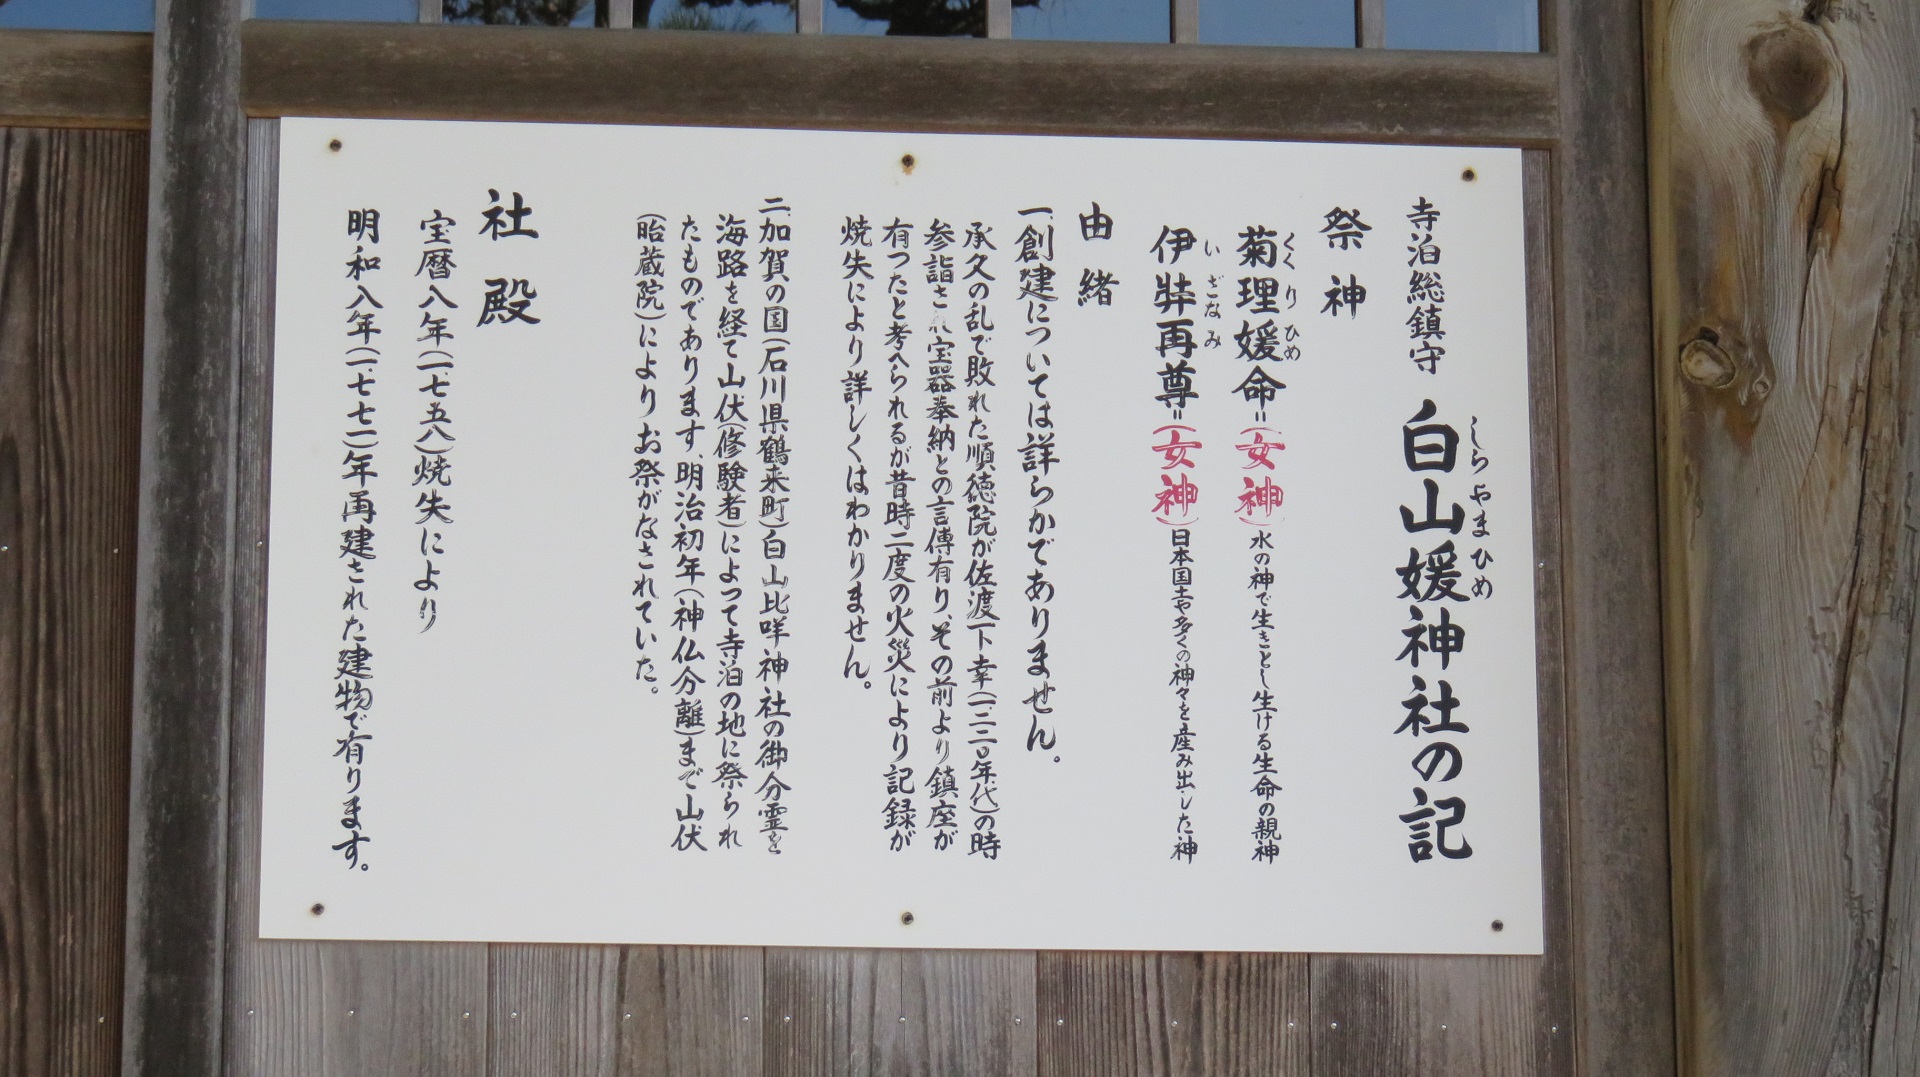 寺泊総鎮守 白山媛神社の記
しらやまひめ
祭神
菊理媛命=(女神)水の神で生きとし生ける生命の親神
くくりひめ
伊弉再尊=(女神)日本国土や多くの神々を産み出した神
いざなみ
由緒
一、創建については詳らかでありません。
承久の乱で敗れた順徳院が佐渡下幸(一、二二〇年代)の時
参詣され宝器奉納との言傳有り、その前より鎮座が
有つたと考へられるが昔時二度の火災により記録が
焼失により詳しくはわかりません。
二、加賀の国(石川県鶴来町)白山比咩神社の御分霊を
海路を経て山伏(修験者)によつて寺泊の地に祭られ
たものであります、明治初年(神仏分離)まで山伏
(眙蔵院)によりお祭がなされていた。
社殿
宝暦八年(一、七五八)焼失により
明和八年(一、七七一)年再建された建物で有ります。